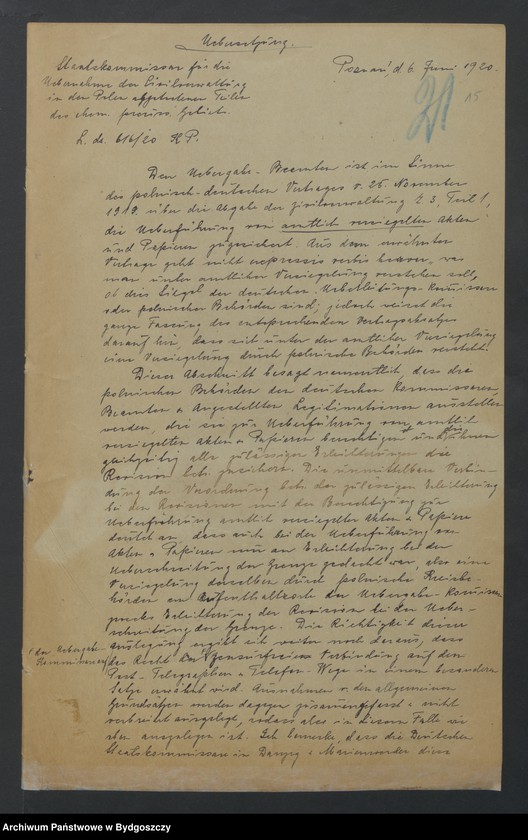 Uebersetzung.
Staatskommissar für die
Uebernahme der Zivilverwaltung
in den Polen abgetretenen Teilen
des ehem. preuss. Gebiets.
Poznań, d. 6. Juni 1920.
21
15
L. dz. 616/20 K.P.
Den Uebergabe-Beamten ist im Sinne
des polnisch-deutschen Vertrages v. 25. November
1919. über die Abgabe der Zivilverwaltung § 3, Teil 1,
die Ueberführung von amtlich versiegelten Akten
und Papieren zugesichert. Aus dem erwähnten
Vertrage geht nicht expressis verbis hervor, was
man unter amtlicher Versiegelung verstehen soll,
ob dies Siegel der deutschen Kommissare
oder polnischen Behörden sind; jedoch weist die
ganze Fassung des entsprechenden Vertragsabsatzes
darauf hin, dass sich unter der amtlichen Versiegelung
eine Versiegelung durch polnische Behörden versteht.
Dieser Abschnitt besagt namentlich, dass die
polnischen Behörden den deutschen Kommissaren,
Beamten u Angestellten Legitimationen ausstellen
werden, die sie zur Ueberführung von amtlich
versiegelten Akten u Papieren berechtigen und ihnen
gleichzeitig alle zulässigen Erleichterungen
Revision zusichert. Die unmittelbare Verbin-
dung der Verordnung der zulässigen Erleichterung
bei den Revisionen mit der Berechtigung zur
Ueberführung amtlich versiegelter Akten u Papiere
deutet an, dass auch bei der Ueberführung von
Akten u Papieren nur an Erleichterung bei der
Ueberschreitung der Grenze gedacht war, also eine
Versiegelung derselben durch polnische Kreisbe-
hörden am Aufenthaltsort der Uebergabe-Kommissare
zwecks Erleichterung der Revision bei der Ueber-
schreitung der Grenze. Die Richtigkeit dieser
Auslegung ergibt sich weiter noch daraus, dass
der Uebergabe
Kommissare
das Recht der zensurfreien Verbindung auf dem
Post- Telegraphen u Telefon-Wege in einem besonderen
Satze erwähnt wird. Ausnahmen v. den allgemeinen
Grundsätzen werden dagegen u nicht
verbreitet ausgelegt, sodass also in diesem Falle
auszulegen ist. Ich bemerke, dass die Deutschen
Staatskommissare in Danzig u Marienwerder diese
Archiwum Państwowe w Bydgoszczy